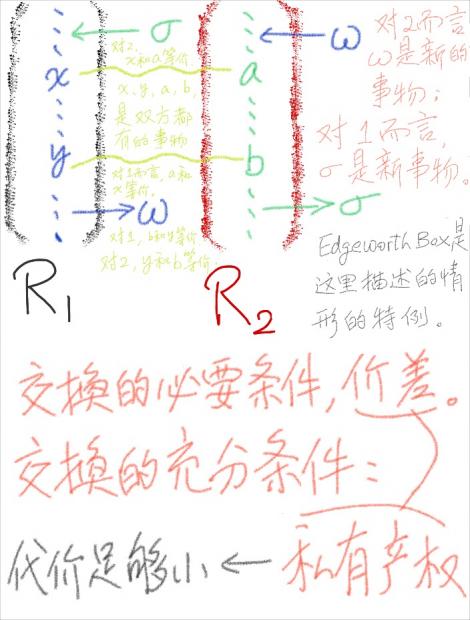 σ
x
y
ω
R1
对2,
x和a等价
x, y, a, b,
是双方都
有的事物
对1而言, a和
x等价,
对1, b和y等价
对2, y和b等价.
ω
a
b
σ
R2
对2而言
ω是新的
事物;
对1而言,
σ是新事物。
Edgeworth Box是
这里描述的情
形的特例。
交换的必要条件, 价差。
交换的充分条件:
代价足够小 ← 私有产权